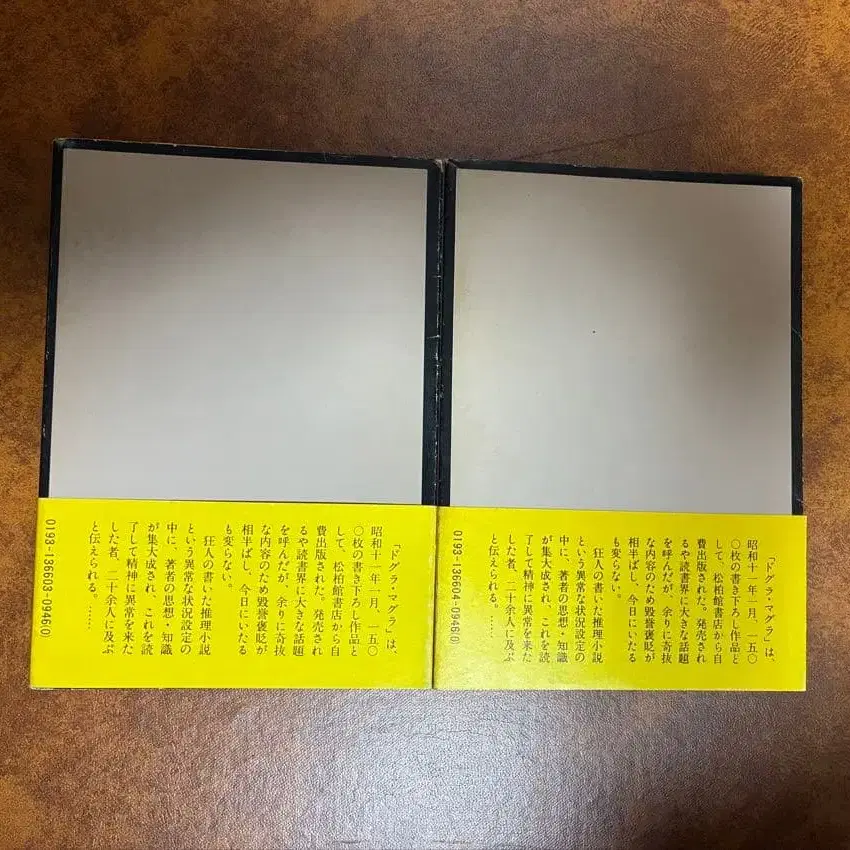 「ドグラ・マグラ」は、
昭和十一年一月、一五〇
〇枚の書き下ろし作品と
して、松柏館書店から自
費出版された。発売され
るや読書界に大きな話題
を呼んだが、余りに奇抜
な内容のため毀誉褒貶が
相半ばし、今日にいたる
も変らない。
狂人の書いた推理小説
という異常な状況設定の
中に、著者の思想・知識
が集大成され、これを読
了して精神に異常を来た
した者、二十余人に及ぶ
と伝えられる。……
0193-136603-0946(0)
「ドグラ・マグラ」は、
昭和十一年一月、一五〇
〇枚の書き下ろし作品と
して、松柏館書店から自
費出版された。発売され
るや読書界に大きな話題
を呼んだが、余りに奇抜
な内容のため毀誉褒貶が
相半ばし、今日にいたる
も変らない。
狂人の書いた推理小説
という異常な状況設定の
中に、著者の思想・知識
が集大成され、これを読
了して精神に異常を来た
した者、二十余人に及ぶ
と伝えられる。……
0193-136604-0946(0)